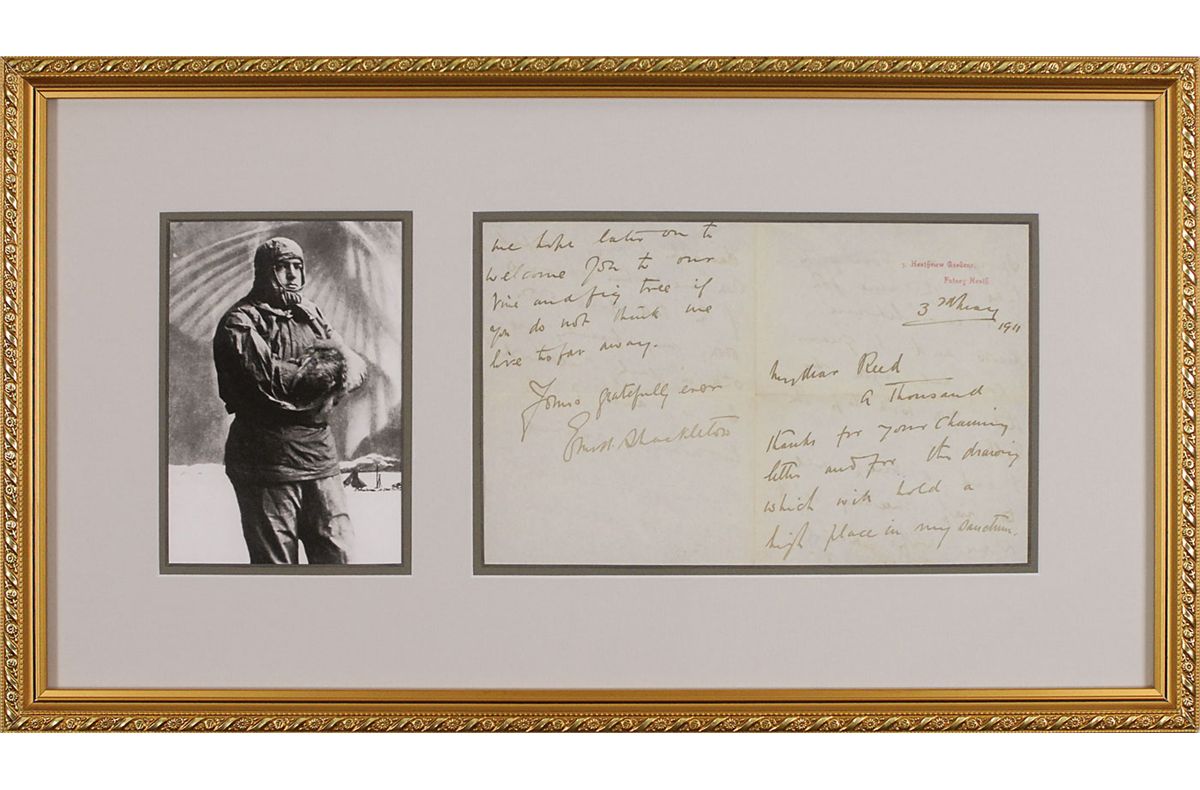 Heathview Gardens,
Putney Heath
3
1911
My dear Reed
A Thousand
thanks for your charming
letter and for the drawing
which will hold a
high place in my Sanctum.
we hope later on to
welcome you to our
Vine and fig tree if
you do not think we
live too far away.
Yours gratefully ever
Ernest Shackleton